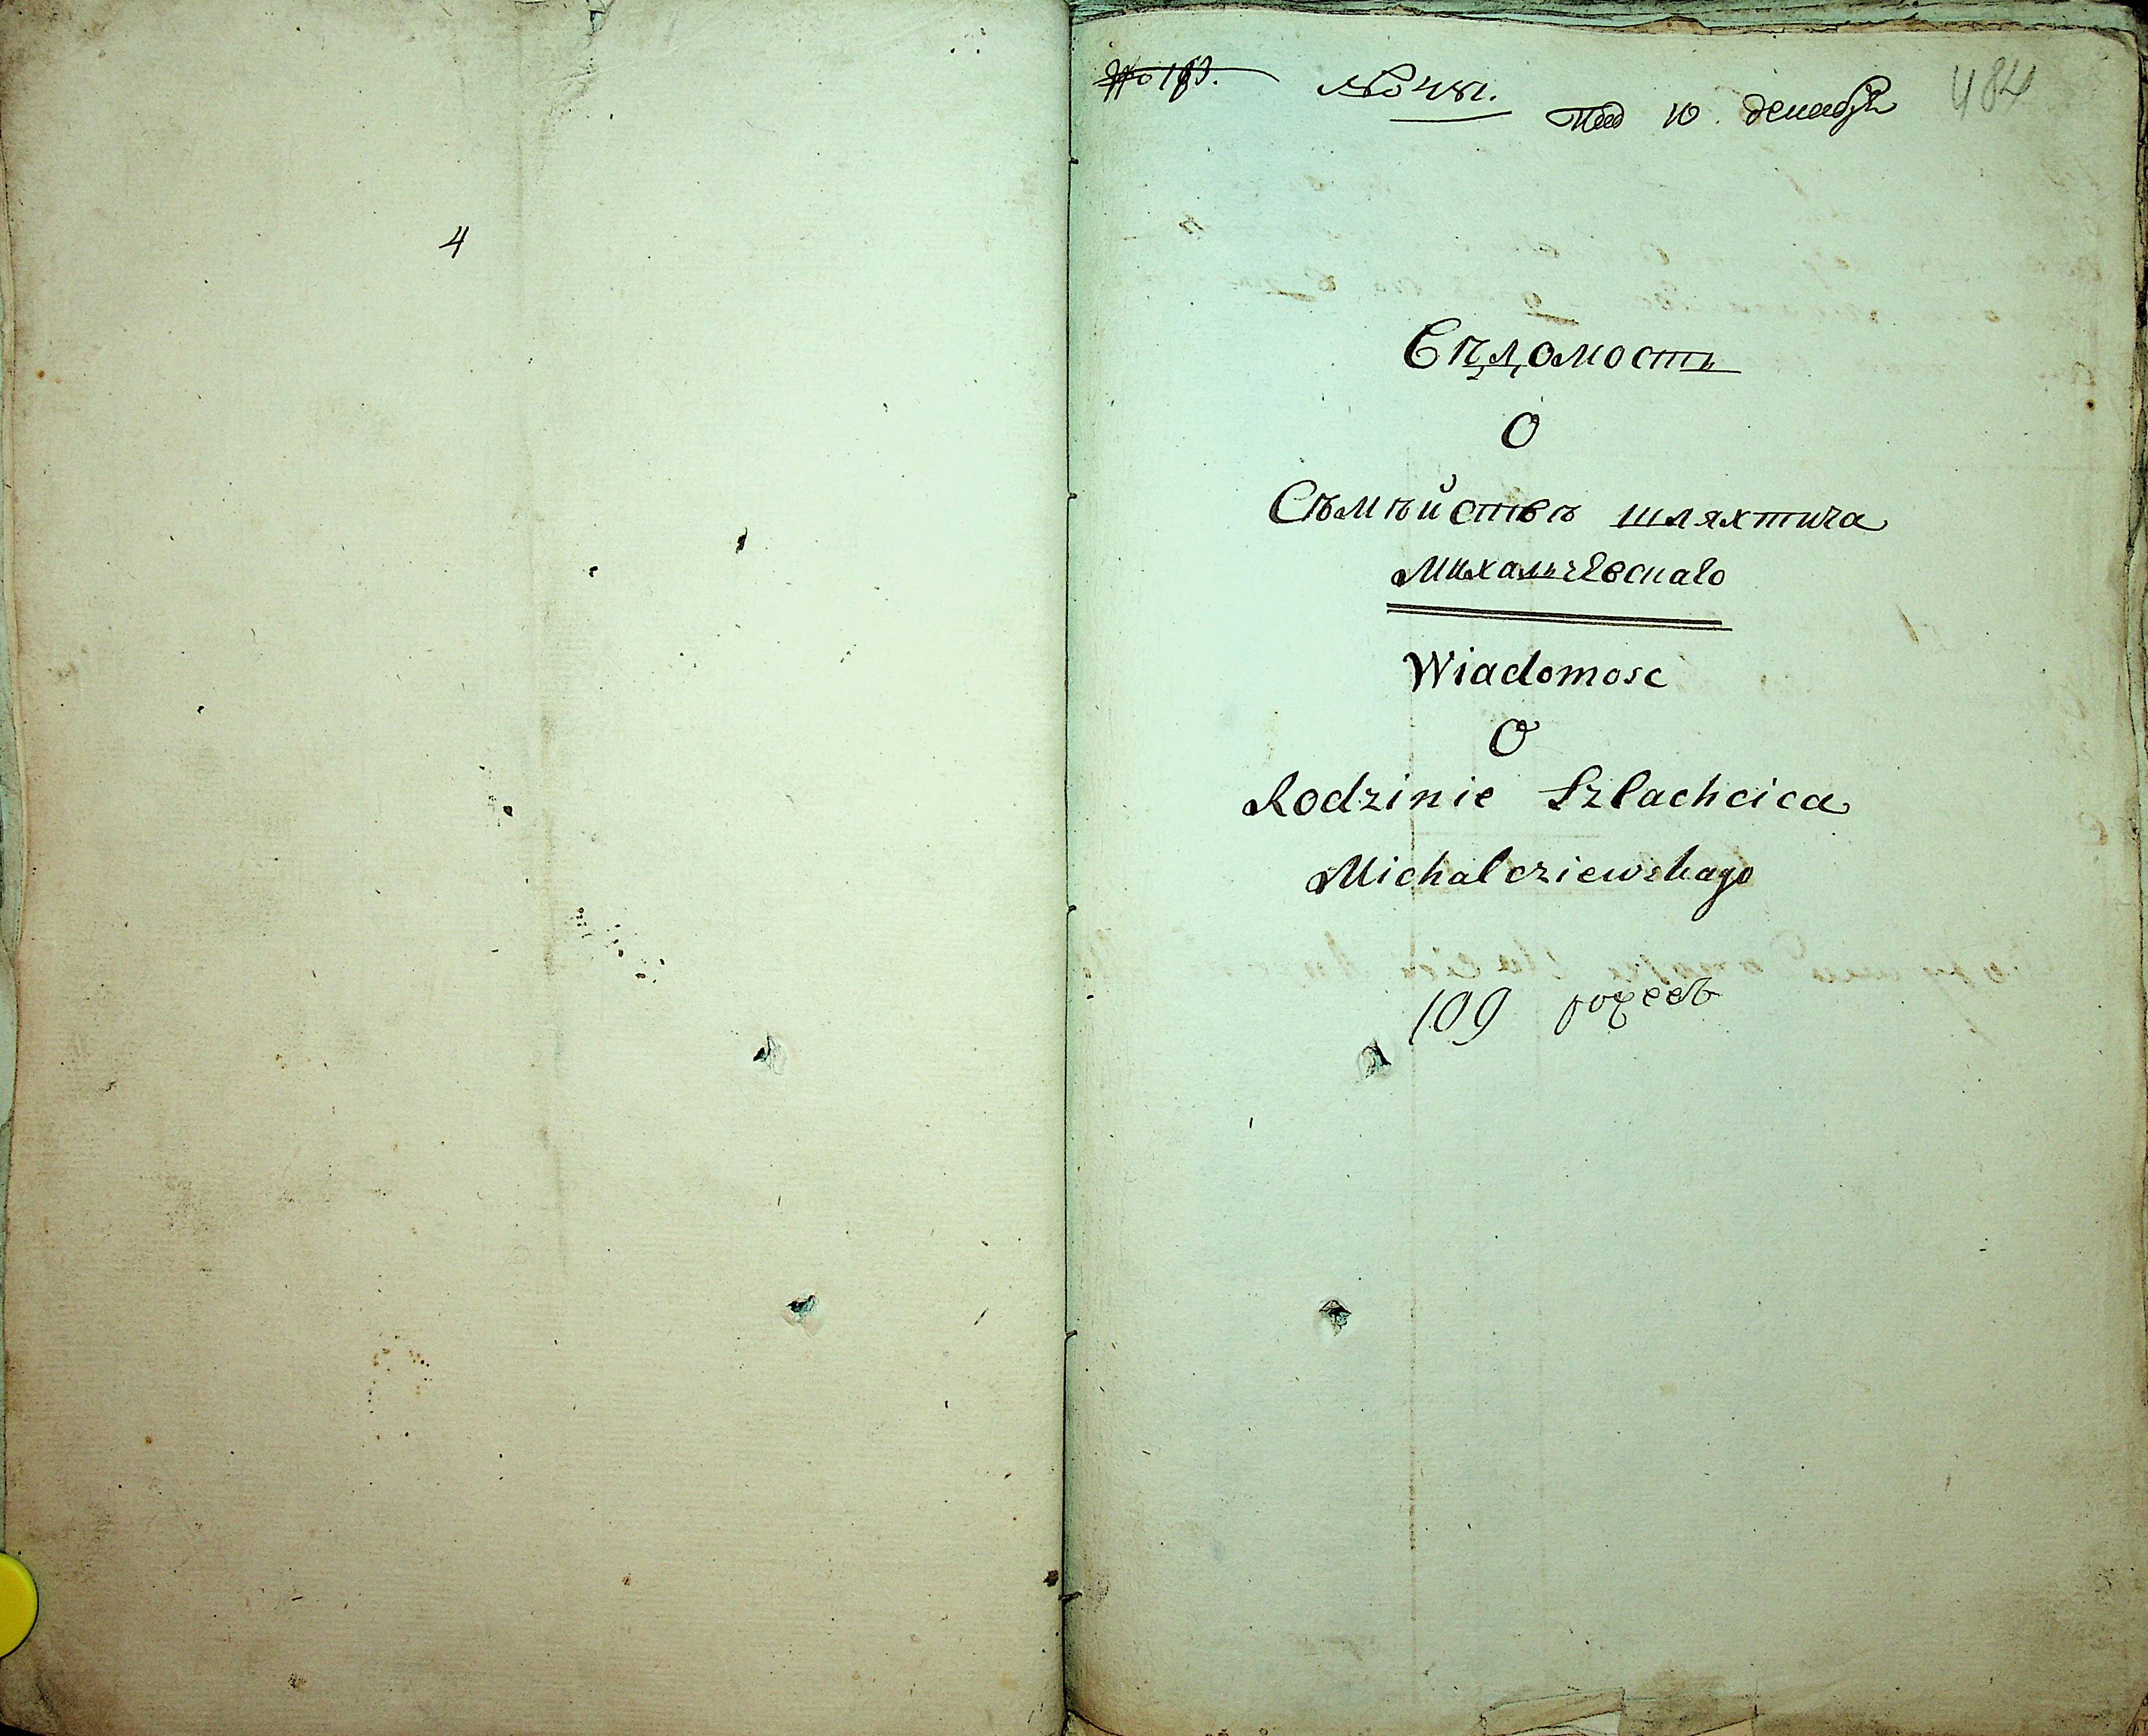 4
№ 481. Под 10 декабря 484
Вѣдомость
О
Съмѣйствѣ шляхтича
Михальчевскаго
Wiadomosc
O
Rodzinie Szlachcica
Michalcziewskago
109